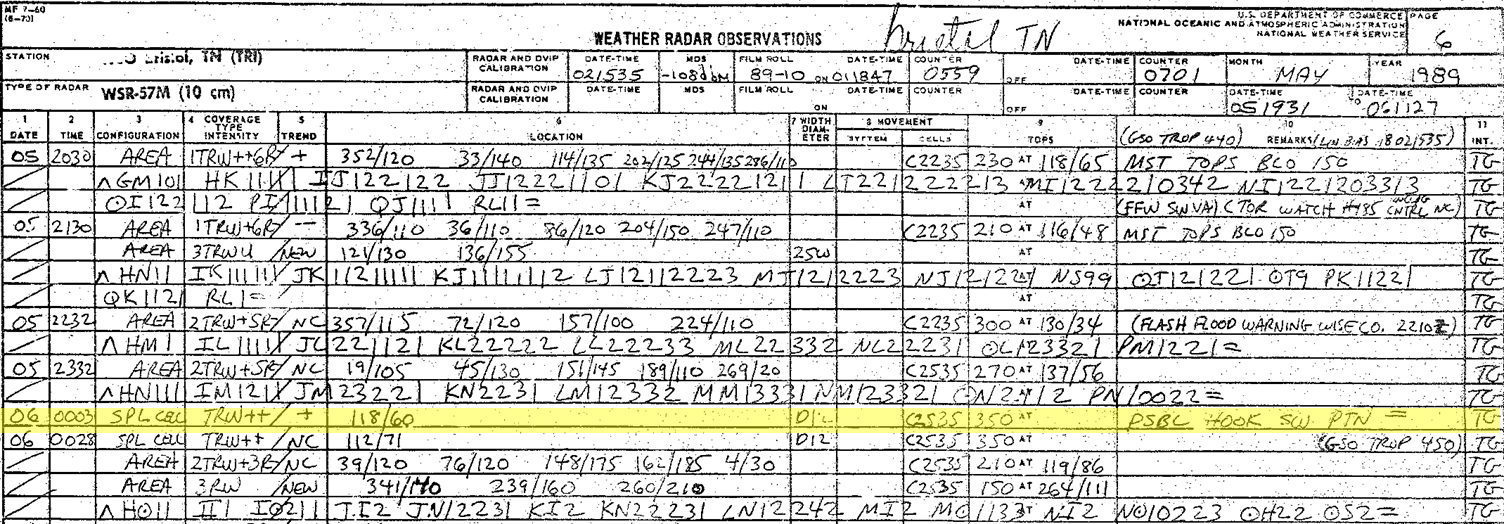 MF 7-60
(6-73)
U.S. DEPARTMENT OF COMMERCE
NATIONAL OCEANIC AND ATMOSPHERIC ADMINISTRATION
NATIONAL WEATHER SERVICE
PAGE 6
WEATHER RADAR OBSERVATIONS
Bristol TN
STATION Bristol, TN (TRI) RADAR AND DVIP CALIBRATION DATE-TIME 021535 MDS -108dbM FILM ROLL 89-10 ON DATE-TIME 011847 COUNTER 0559 OFF DATE-TIME COUNTER 0701 MONTH MAY YEAR 1989
TYPE OF RADAR WSR-57M (10 cm) RADAR AND DVIP CALIBRATION DATE-TIME MDS FILM ROLL ON DATE-TIME COUNTER OFF DATE-TIME COUNTER DATE-TIME 051931 TO DATE-TIME 061127
1 DATE 2 TIME 3 CONFIGURATION 4 COVERAGE TYPE INTENSITY 5 TREND 6 LOCATION 7 WIDTH DIAMETER 8 MOVEMENT SYSTEM CELLS 9 TOPS 10 (GSO TROP 440) REMARKS 11 INT.
05 2030 AREA 1TRW++6R-/ + 352/120 33/140 114/135 202/125 244/135 286/110 C2235 230 AT 118/65 MST TOPS BLO 150 TG
^GM101 HK11111 IJ122122 JJ12221101 KJ22221211 LJ2212222213 MI1222210342 NI1221203313 TG
OI122112 PI111121 QJ1111 RL11= AT (FFW SWVA) (TOR WATCH CNTRL NC) TG
05 2130 AREA 1TRW+6R-/ - 336/110 36/110 86/120 204/150 247/110 C2235 210 AT 116/48 MST TOPS BLO 150 TG
AREA 3TRWU /NEW 121/130 136/155 25W AT TG
^HN11 IK111111 JK112111111 KJ11111112 LJ12112223 MJ1212223 NJ12122 NS99 OJ121221 OT9 PK11221 TG
QK1121 RL1= AT TG
05 2232 AREA 2TRW+5R-/ NC 357/115 72/120 157/100 224/110 C2235 300 AT 130/34 (FLASH FLOOD WARNING WISE CO. 2210Z) TG
^HM1 IL11111 JL221121 KL22222 LL22233 ML22332 NL22231 OL123321 PM1221= TG
05 2332 AREA 2TRW+5R-/ NC 19/105 45/130 151/145 189/110 269/20 C2535 270 AT 137/56 TG
^HN111 IM1211 JM23221 KN2231 LM12332 MM13331 NM123321 ON22112 PN10022= TG
06 0003 SPL CELL TRW++ / + 118/60 D12 C2535 350 AT PSBL HOOK SW PTN = TG
06 0028 SPL CELL TRW++ / NC 112/71 D12 C2535 350 AT (GSO TROP 450) TG
AREA 2TRW+3R-/NC 39/120 76/120 148/175 162/185 4/30 C2535 210 AT 119/86 TG
AREA 3RW- /NEW 341/140 239/160 260/210 C2535 150 AT 264/111 TG
^HO11 II1 IO211 JI2 JN12231 KI2 KN22231 LN12242 MI2 MO1133 NI2 NO10223 OH22 OS2= TG